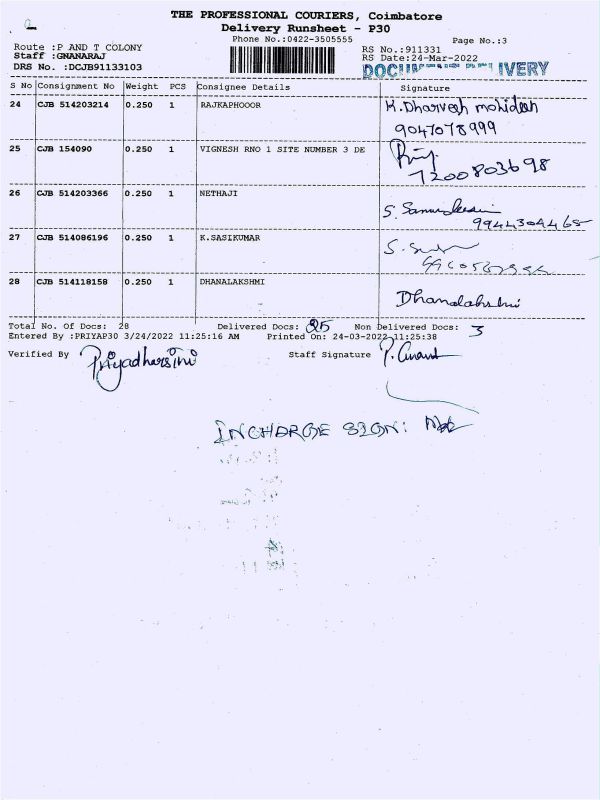 THE PROFESSIONAL COURIERS, Coimbatore
Delivery Runsheet - P30
Phone No.:0422-3505555
Page No.:3
Route :P AND T COLONY
RS No.:911331
Staff :GNANARAJ
RS Date:24-Mar-2022
DRS No. :DCJB91133103
S No Consignment No Weight PCS Consignee Details Signature
24 CJB 514203214 0.250 1 RAJKAPHOOOR K. Dharvesh mohideen
9047078999
25 CJB 154090 0.250 1 VIGNESH RNO 1 SITE NUMBER 3 DE
7200803698
26 CJB 514203366 0.250 1 NETHAJI
9944304465
27 CJB 514086196 0.250 1 K.SASIKUMAR
28 CJB 514118158 0.250 1 DHANALAKSHMI Dhanalakshmi
Total No. Of Docs: 28 Delivered Docs: 25 Non Delivered Docs: 3
Entered By :PRIYAP30 3/24/2022 11:25:16 AM Printed On: 24-03-2022 11:25:38
Verified By Priyadharsini Staff Signature P. Anand
INCHARGE SIGN: